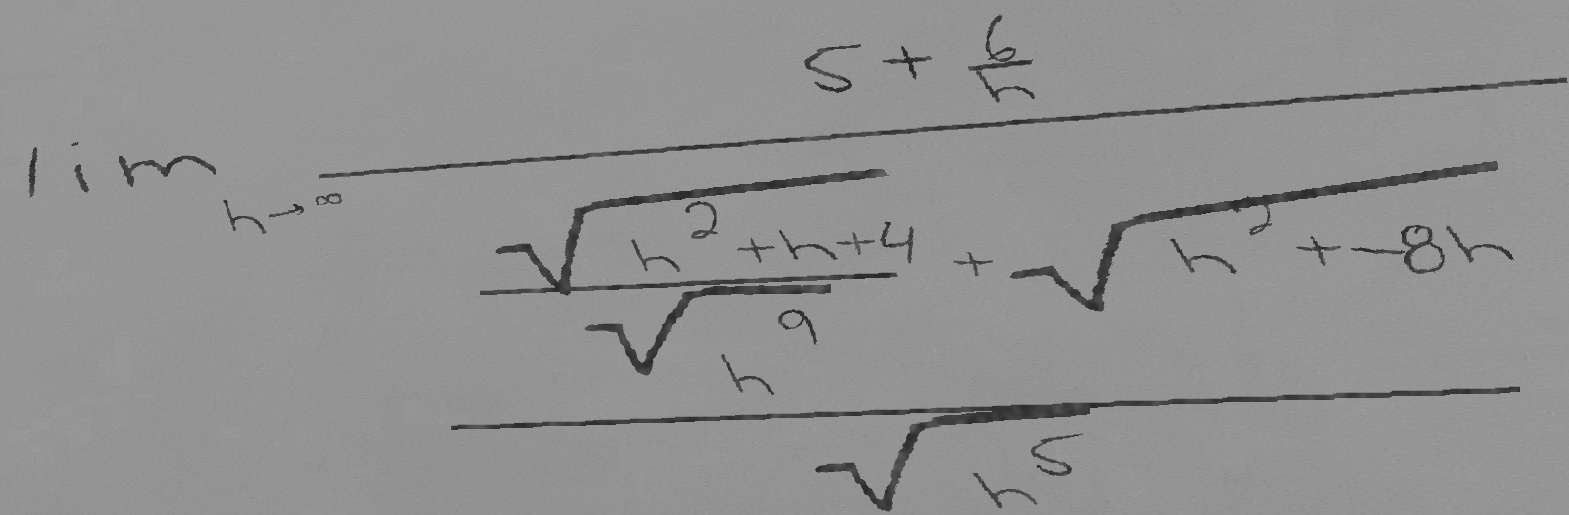 \lim_{h \to \infty} \frac{5 + \frac{6}{h}}{\frac{\frac{\sqrt{h^2 + h + 4}}{\sqrt{h^9}} + \sqrt{h^2 + -8h}}{\sqrt{h^5}}}